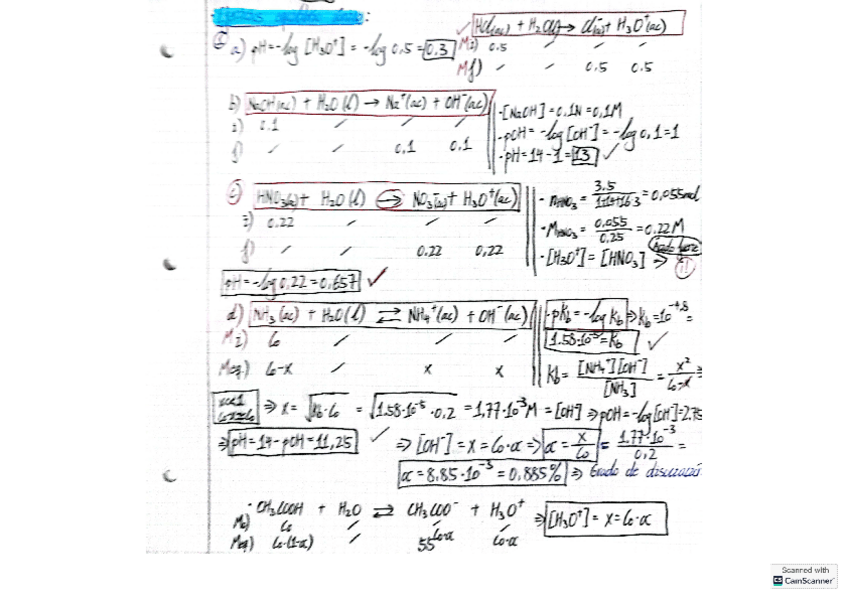 HCl(ac) + H₂O(l) → Cl⁻(ac) + H₃O⁺(ac)
a) pH = -log [H₃O⁺] = -log 0.5 = 0.3 ✓
Mi) 0.5 / / /
Mf) / / 0.5 0.5
b) NaOH(ac) + H₂O(l) → Na⁺(ac) + OH⁻(ac)
i) 0.1 / / /
f) / / 0.1 0.1
·[NaOH] = 0.1N = 0.1M
·pOH = -log [OH⁻] = -log 0.1 = 1
·pH = 14 - 1 = 13 ✓
c) HNO₃(ac) + H₂O(l) → NO₃⁻(ac) + H₃O⁺(ac)
i) 0.22 / / /
f) / / 0.22 0.22
·nHNO₃ = 3.5/1+14+16·3 = 0.055mol
·MHNO₃ = 0.055/0.25 = 0.22M
·[H₃O⁺] = [HNO₃] ⇒
pH = -log 0.22 = 0.657 ✓
d) NH₃(ac) + H₂O(l) ⇄ NH₄⁺(ac) + OH⁻(ac)
Mi) Co / / /
Meq.) Co-x / x x
·pKb = -log Kb ⇒ Kb = 10⁻⁴·⁸ =
1.58·10⁻⁵ = Kb ✓
Kb = [NH₄⁺][OH⁻]/[NH₃] = x²/Co-x ⇒
⇒ x = √Kb·Co = √1.58·10⁻⁵·0,2 = 1,77·10⁻³M = [OH⁻] ⇒ pOH = -log [OH⁻] = 2.75
⇒ pH = 14 - pOH = 11,25 ✓ ⇒ [OH⁻] = x = Co·α ⇒ α = x/Co = 1.77·10⁻³/0,2 =
α = 8.85·10⁻³ = 0.885% ⇒ Grado de disociación
·CH₃COOH + H₂O ⇄ CH₃COO⁻ + H₃O⁺ ⇒ [H₃O⁺] = x = Co·α
Mi) Co / / /
Meq) Co·(1-α) / Co·α Co·α
55
Scanned with
CS CamScanner